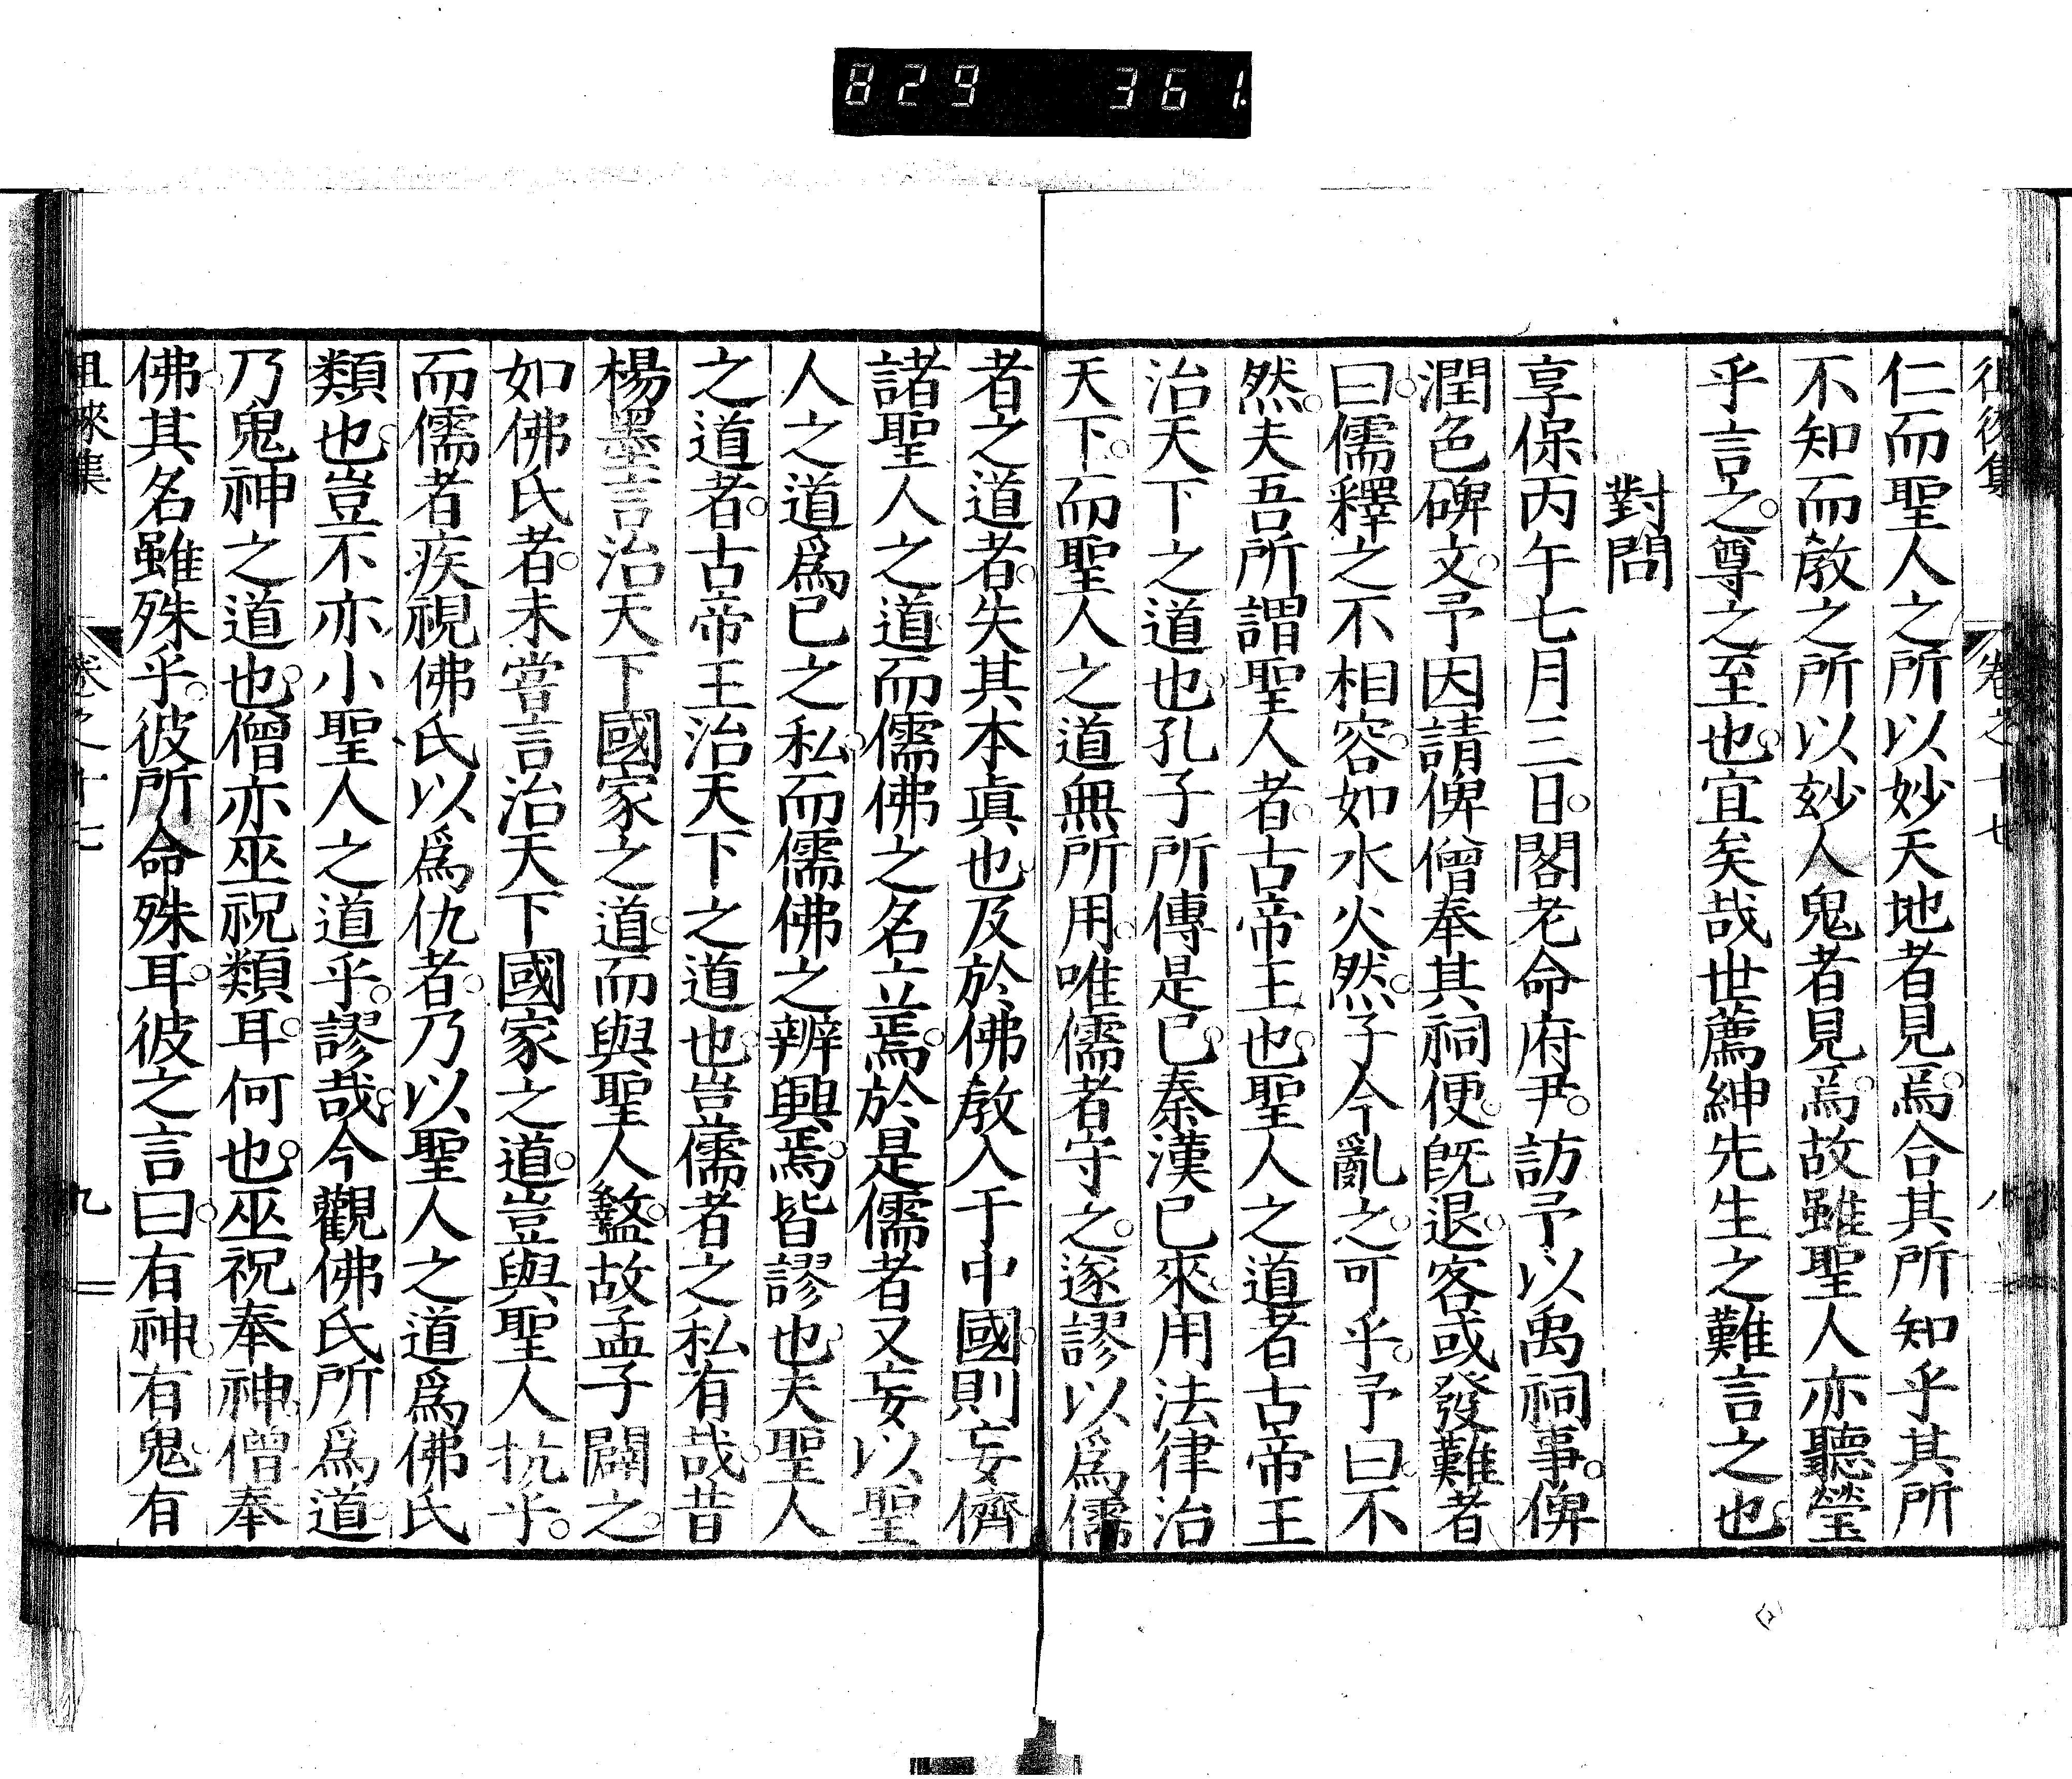 829 361.
仁而聖人之所以妙天地者見焉。合其所知乎其所
不知而教之所以玅人鬼者見焉。故雖聖人亦聽瑩
乎言之。尊之至也。宜矣哉世薦紳先生之難言之也。
對問
享保丙午七月三日。閣老命府尹。訪予以禹祠事。俾
潤色碑文。予因請俾僧奉其祠便。既退。客或發難者
曰。儒釋之不相容。如水火然。子今亂之。可乎。予曰。不
然。夫吾所謂聖人者。古帝王也。聖人之道者古帝王
治天下之道也。孔子所傳是已。秦漢已來。用法律治
天下。而聖人之道無所用。唯儒者守之。遂謬以爲儒
者之道者。失其本眞也。及於佛教入于中國。則妄儕
諸聖人之道。而儒佛之名立焉。於是儒者又妄以聖
人之道爲己之私。而儒佛之辨興焉。皆謬也。夫聖人
之道者。古帝王治天下之道也。豈儒者之私有哉。昔
楊墨言治天下國家之道。而與聖人盭。故孟子闢之。
如佛氏者。未嘗言治天下國家之道。豈與聖人抗乎。
而儒者疾視佛氏以爲仇者。乃以聖人之道爲佛氏
類也。豈不亦小聖人之道乎。謬哉。今觀佛氏所爲道。
乃鬼神之道也。僧亦巫祝類耳。何也。巫祝奉神。僧奉
佛。其名雖殊乎。彼所命殊耳。彼之言曰。有神。有鬼。有
徠集 卷之十七 九